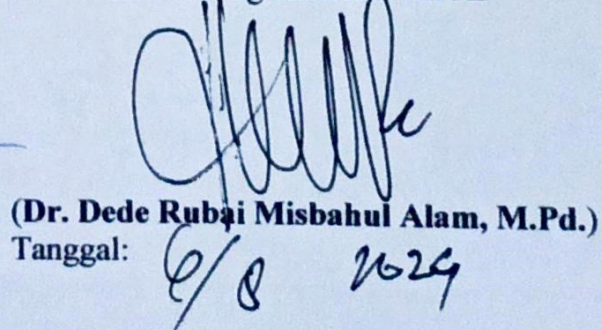 (Dr. Dede Rubai Misbahul Alam, M.Pd.)
Tanggal: 6/8 2024